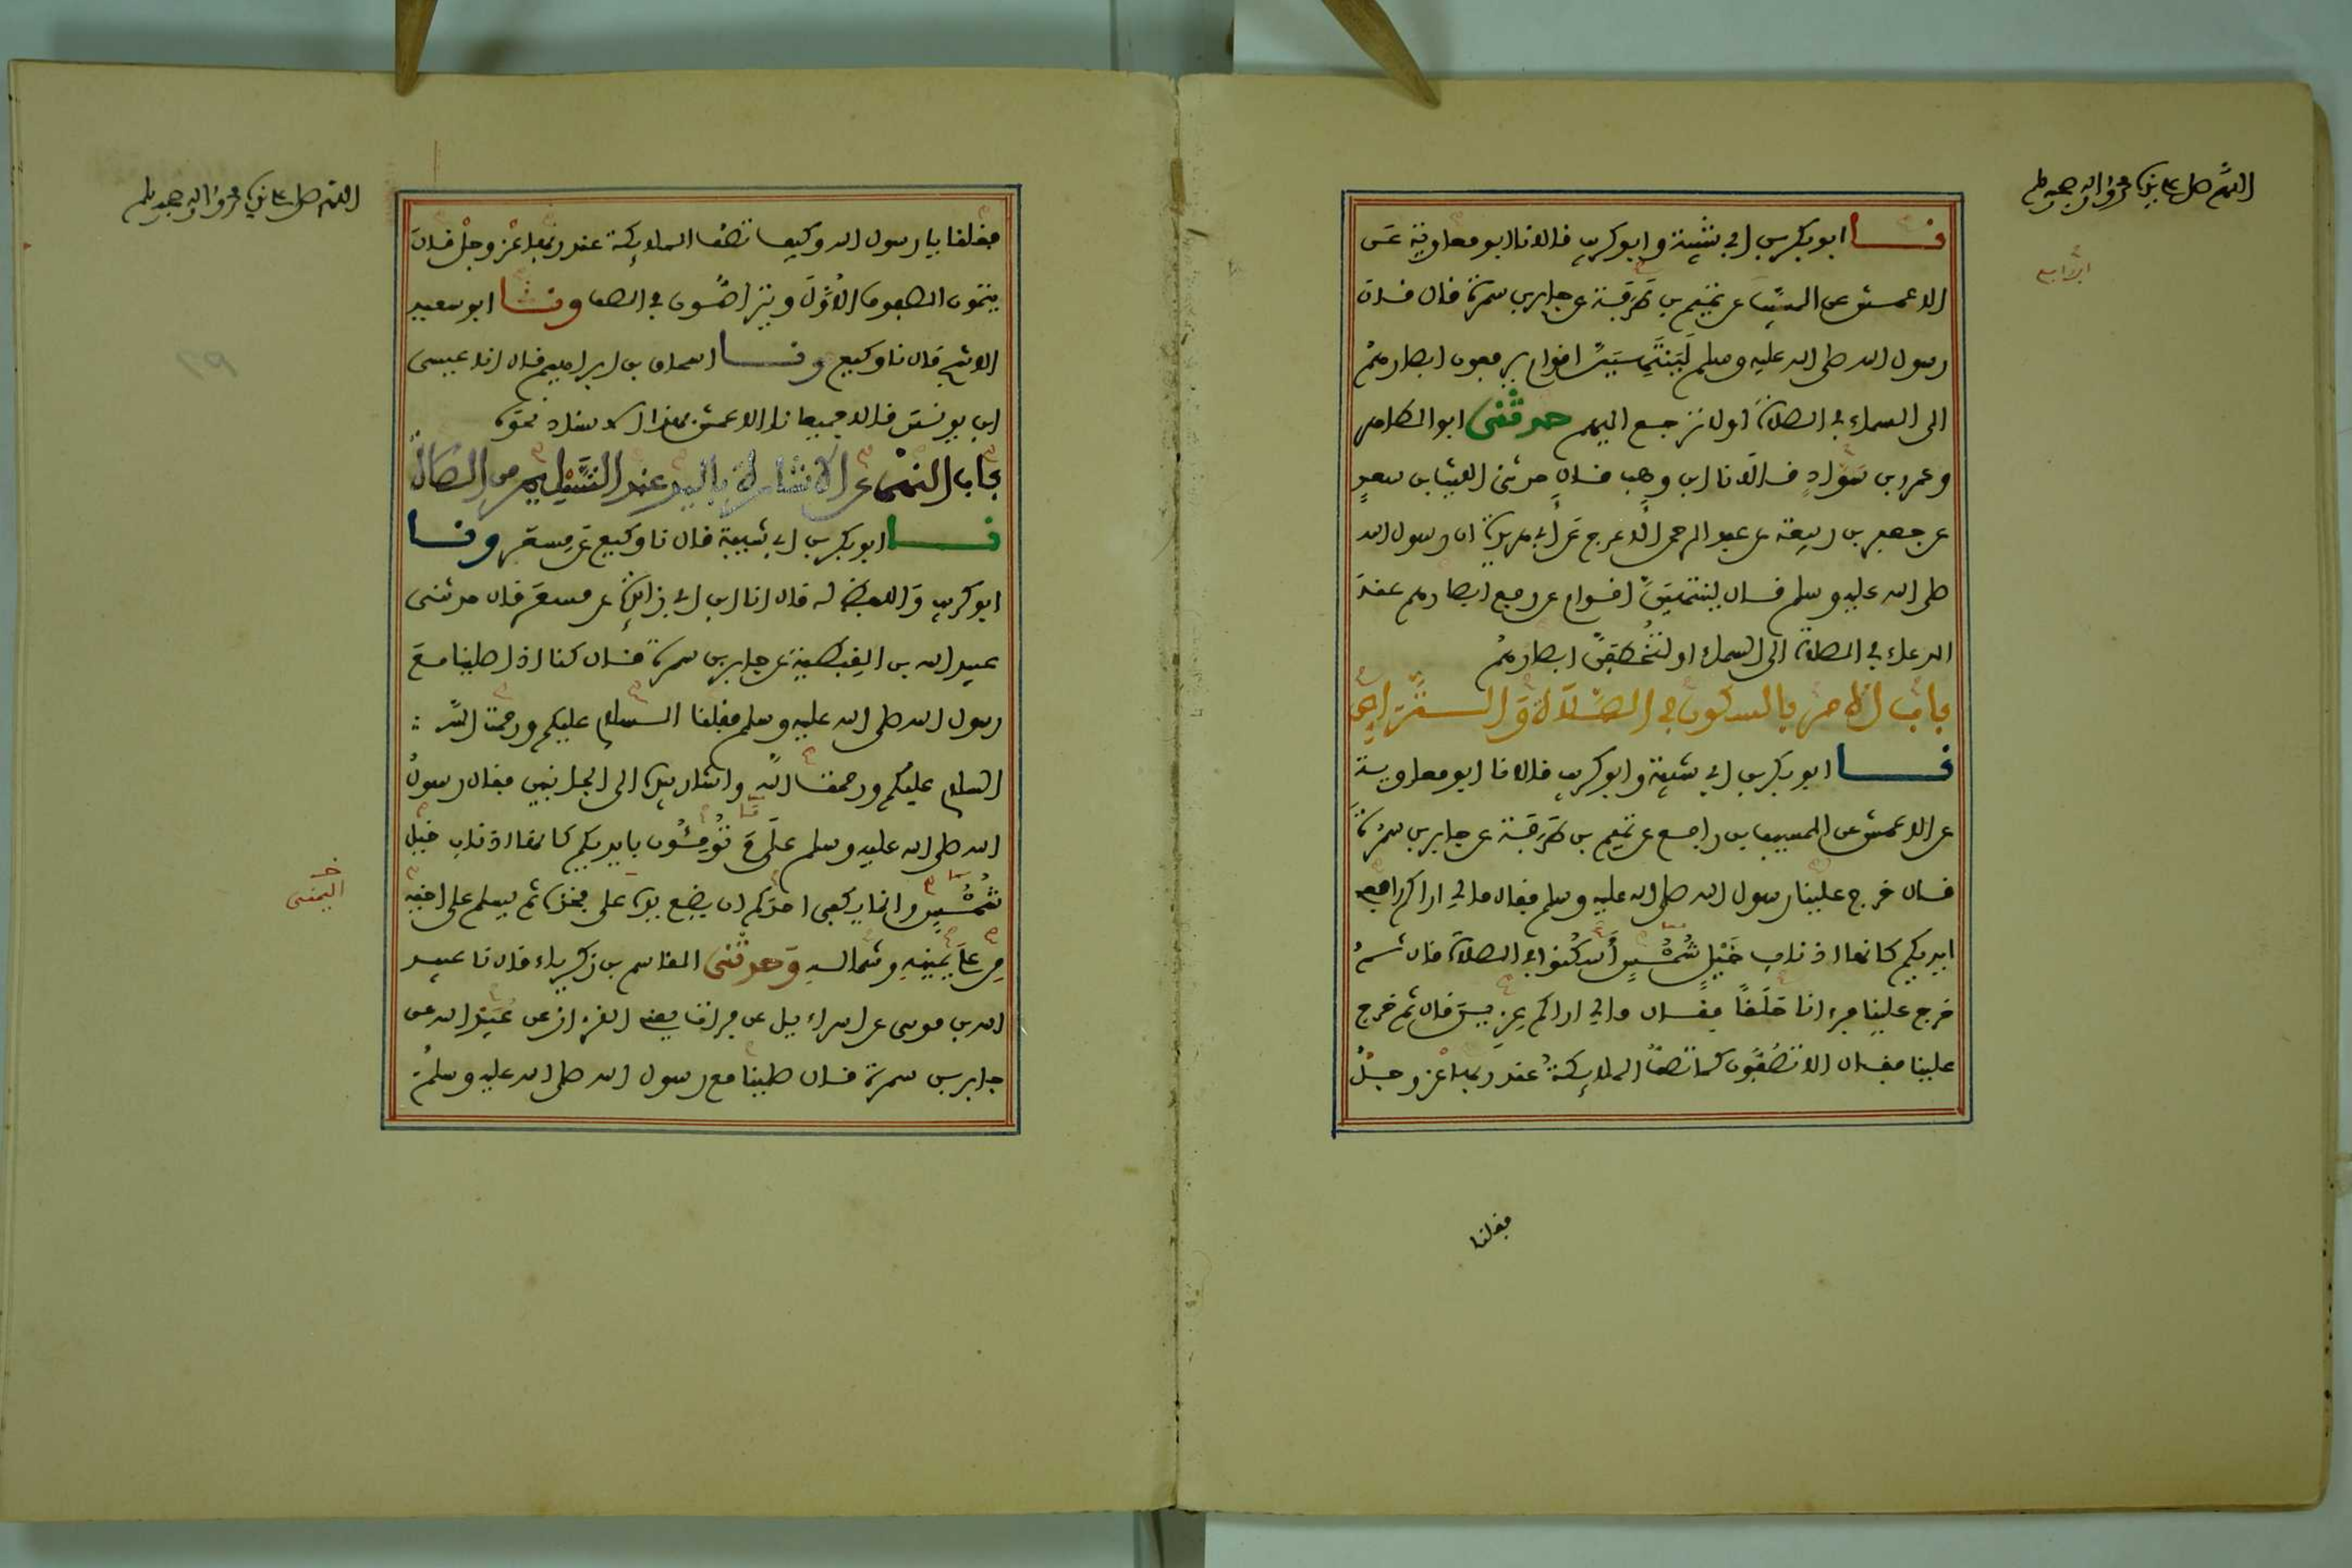 اللهم صل على نبينا محمد وءاله وصحبه وسلم
نا ابو بكر بن ابي شيبة وابو كريب قالا نا ابو معاوية عن
الاعمش عن المسيب عن تميم بن طرفة عن جابر بن سمرة قال قال
رسول الله صلى الله عليه وسلم لينتهين اقوام يرفعون ابصارهم
الى السماء في الصلاة او لا ترجع اليهم حدثني ابو الطاهر
وعمرو بن سواد قالا نا ابن وهب قال حدثني الليث بن سعد
عن جعفر بن ربيعة عن عبد الرحمن الاعرج عن ابي هريرة ان رسول الله
صلى الله عليه وسلم قال لينتهين اقوام عن رفع ابصارهم عند
الدعاء في الصلاة الى السماء او لتخطفن ابصارهم
باب الامر بالسكون في الصلاة والتراص
نا ابو بكر بن ابي شيبة وابو كريب قالا نا ابو معاوية
عن الاعمش عن المسيب بن رافع عن تميم بن طرفة عن جابر بن سمرة
قال خرج علينا رسول الله صلى الله عليه وسلم فقال مالي اراكم رافعي
ايديكم كانها اذناب خيل شمس اسكنوا في الصلاة قال ثم
خرج علينا فرءانا حلقا فقال مالي اراكم عزين قال ثم خرج
علينا فقال الا تصفون كما تصف الملائكة عند ربها عز وجل
فقلنا
اللهم صل على نبينا محمد وءاله وصحبه وسلم
فقلنا يا رسول الله وكيف تصف الملائكة عند ربها عز وجل قال
يتمون الصفوف الاول ويتراصون في الصف ونا ابو سعيد
الاشج قال نا وكيع ونا اسحاق بن ابراهيم قال انا عيسى
ابن يونس قالا جميعا نا الاعمش بهذا الاسناد نحوه
باب النهي عن الاشارة باليد عند التسليم من الصلاة
نا ابو بكر بن ابي شيبة قال نا وكيع عن مسعر ونا
ابو كريب واللفظ له قال انا ابن ابي زائدة عن مسعر قال حدثني
عبيد الله بن القبطية عن جابر بن سمرة قال كنا اذا صلينا مع
رسول الله صلى الله عليه وسلم فقلنا السلام عليكم ورحمة الله
السلام عليكم ورحمة الله واشار بيده الى الجانبين فقال رسول
الله صلى الله عليه وسلم على م تومئون بايديكم كانها اذناب خيل
شمس وانما يكفي احدكم ان يضع يده على فخذه ثم يسلم على اخيه
من على يمينه وشماله وحدثني القاسم بن زكرياء قال نا عبيد
الله بن موسى عن اسراءيل عن فرات يعني القزاز عن عبيد الله عن
جابر بن سمرة قال صليت مع رسول الله صلى الله عليه وسلم